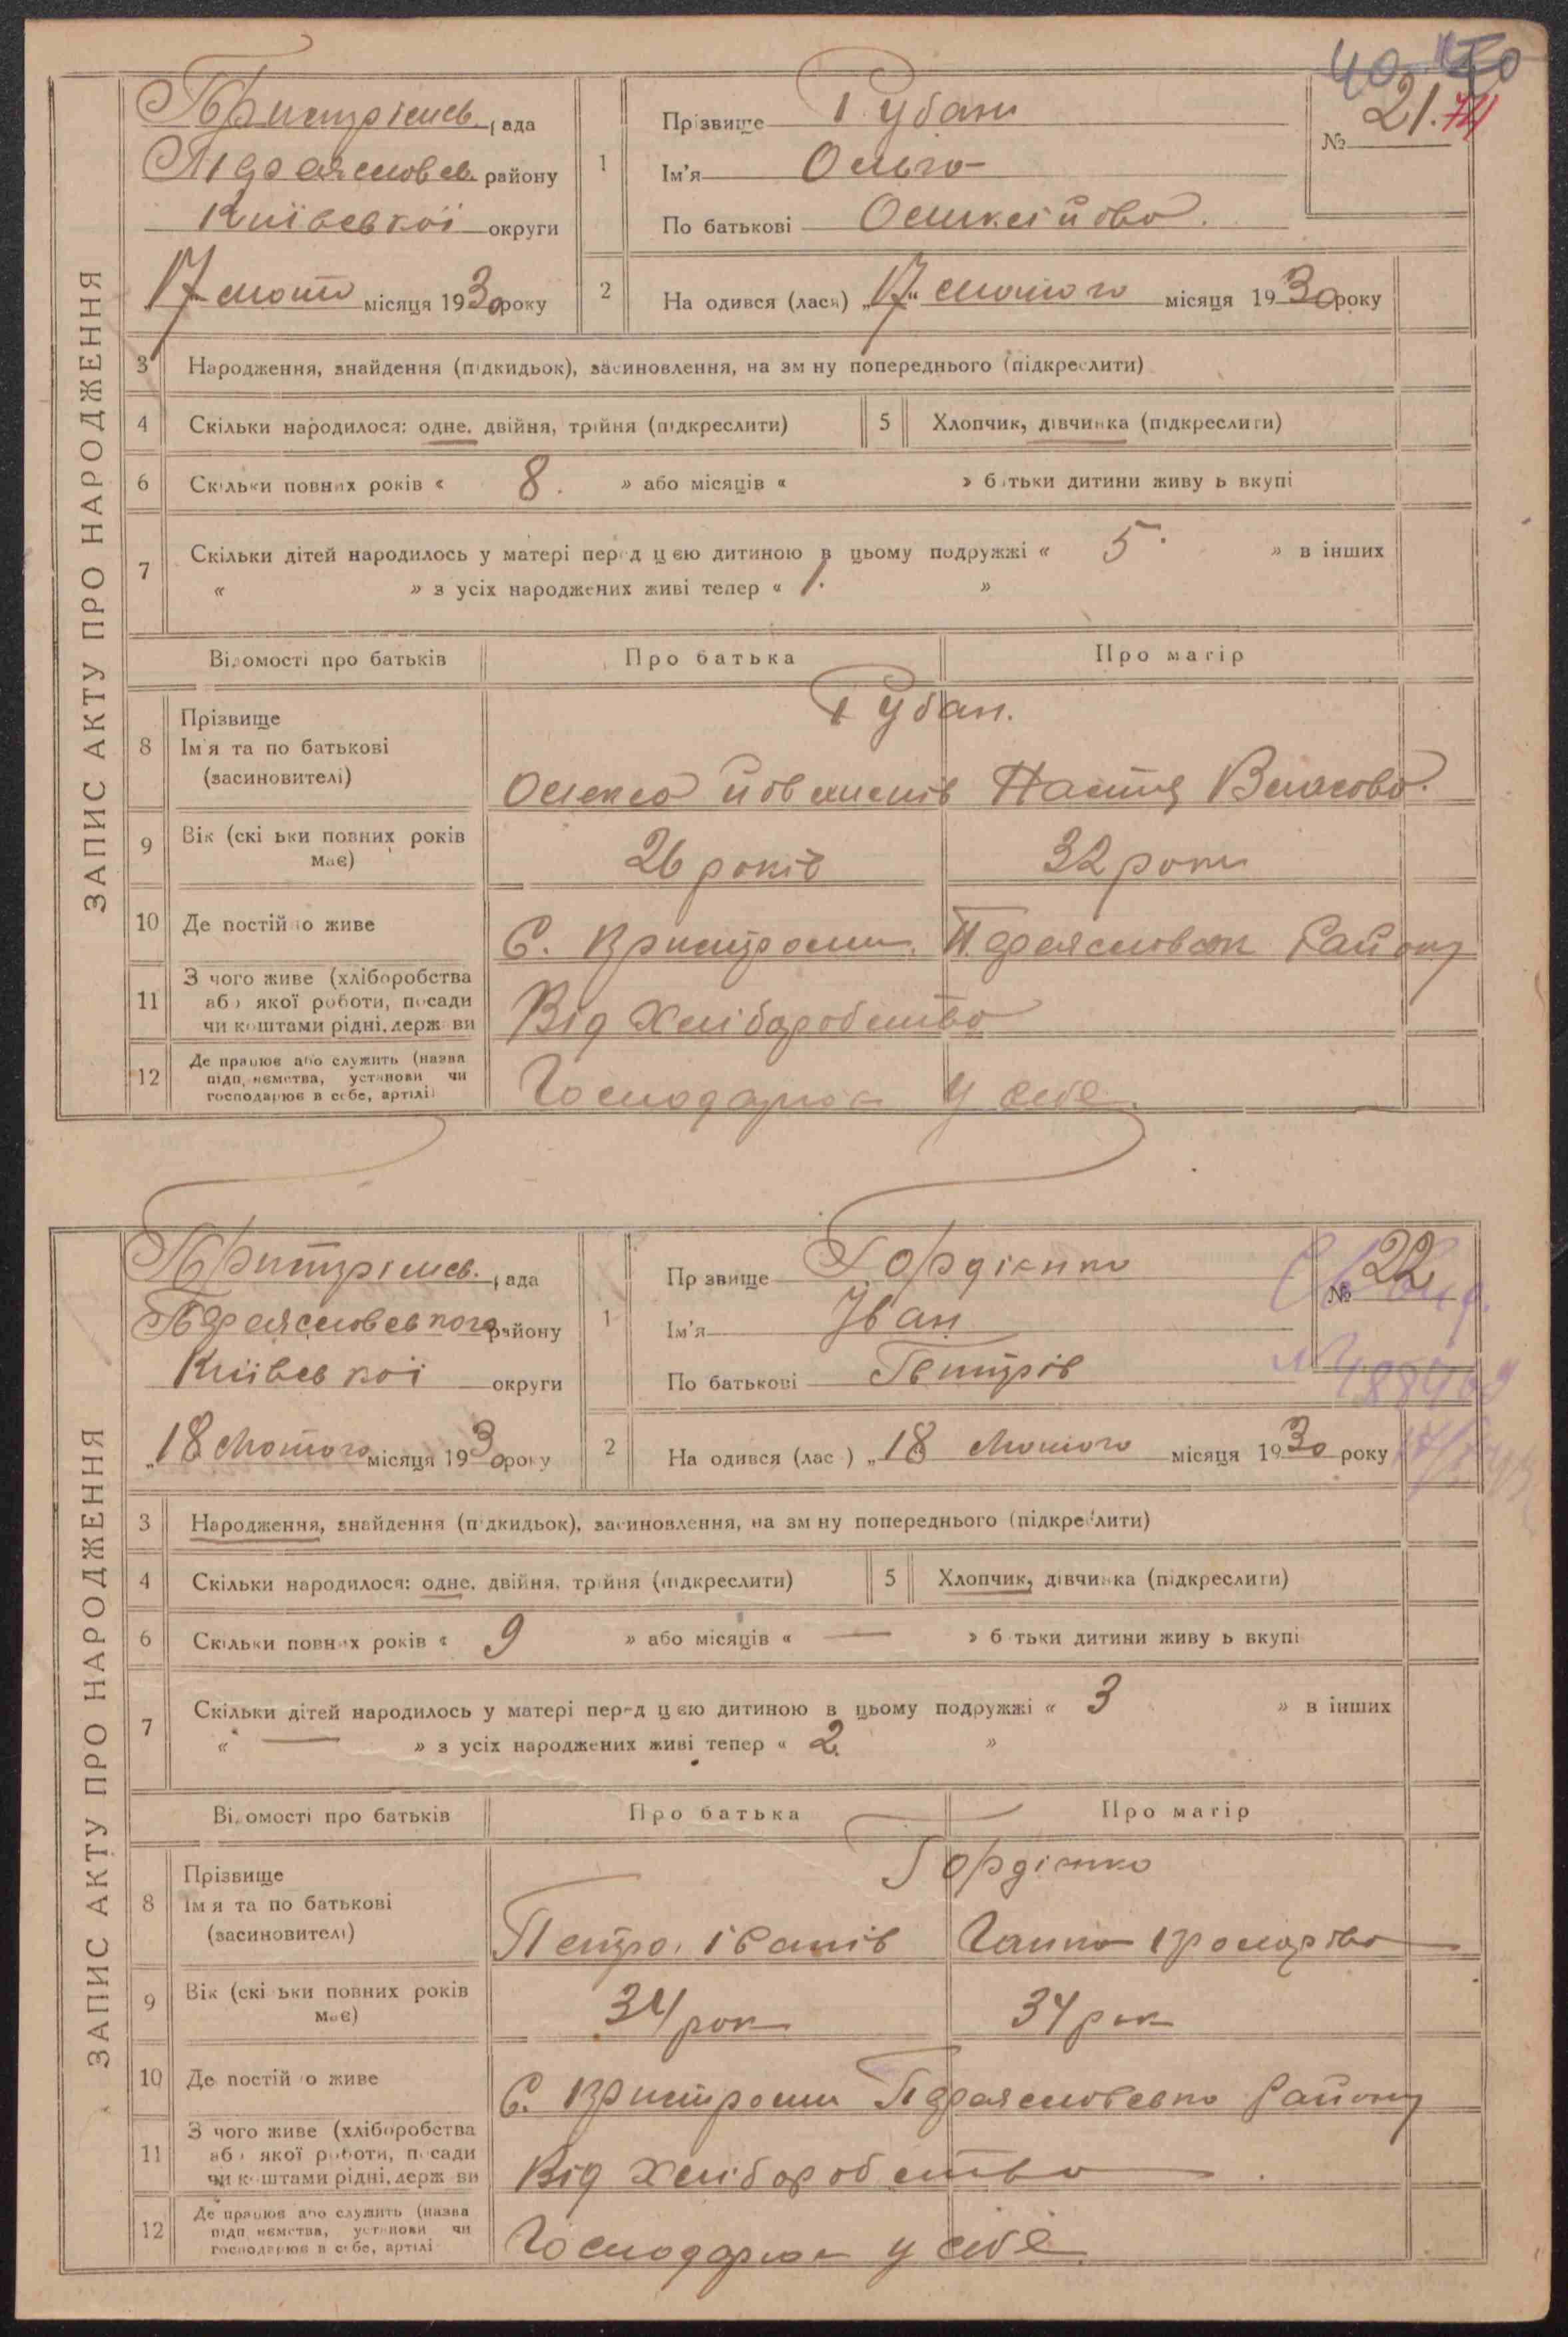 ЗАПИС АКТУ ПРО НАРОДЖЕННЯ
рада
району
Київської округи
17 лютого місяця 1930 року
№ 21. 74
1 Прізвище Губан
Ім'я Ольга
По батькові Олексійова.
2 Народився (лася) „17“ лютого місяця 1930 року
3 Народження, знайдення (підкидьок), засиновлення, на зміну попереднього (підкреслити)
4 Скільки народилося: одне, двійня, трійня (підкреслити)
5 Хлопчик, дівчинка (підкреслити)
6 Скільки повних років « 8. » або місяців « » батьки дитини живуть вкупі
7 Скільки дітей народилось у матері перед цією дитиною в цьому подружжі « 5. » в інших
« » з усіх народжених живі тепер « 1. »
Відомості про батьків
Про батька
Про матір
8 Прізвище
Ім'я та по батькові
(засиновителі)
Губан.
Настя Власова.
9 Вік (скільки повних років
має)
26 років
32 роки
10 Де постійно живе
С. Пристроми. Району
11 З чого живе (хліборобства
або якої роботи, посади
чи коштами рідні, держави
Від Хліборобства
12 Де працює або служить (назва
підприємства, установи чи
господарює в себе, артілі)
Господарює у себе.
ЗАПИС АКТУ ПРО НАРОДЖЕННЯ
рада
району
Київської округи
„18 Лютого місяця 1930 року
№ 22
1 Прізвище Гордієнко
Ім'я Іван
По батькові Петрів
2 Народився (лася) „18 Лютого місяця 1930 року
3 Народження, знайдення (підкидьок), засиновлення, на зміну попереднього (підкреслити)
4 Скільки народилося: одне, двійня, трійня (підкреслити)
5 Хлопчик, дівчинка (підкреслити)
6 Скільки повних років « 9 » або місяців « — » батьки дитини живуть вкупі
7 Скільки дітей народилось у матері перед цією дитиною в цьому подружжі « 3 » в інших
« — » з усіх народжених живі тепер « 2 »
Відомості про батьків
Про батька
Про матір
8 Прізвище
Ім'я та по батькові
(засиновителі)
Гордієнко
Петро Іванів
Ганна
9 Вік (скільки повних років
має)
34 рок
34 рок
10 Де постійно живе
С. Пристроми Району
11 З чого живе (хліборобства
або якої роботи, посади
чи коштами рідні, держави
Від Хліборобства
12 Де працює або служить (назва
підприємства, установи чи
господарює в себе, артілі
Господарює у себе